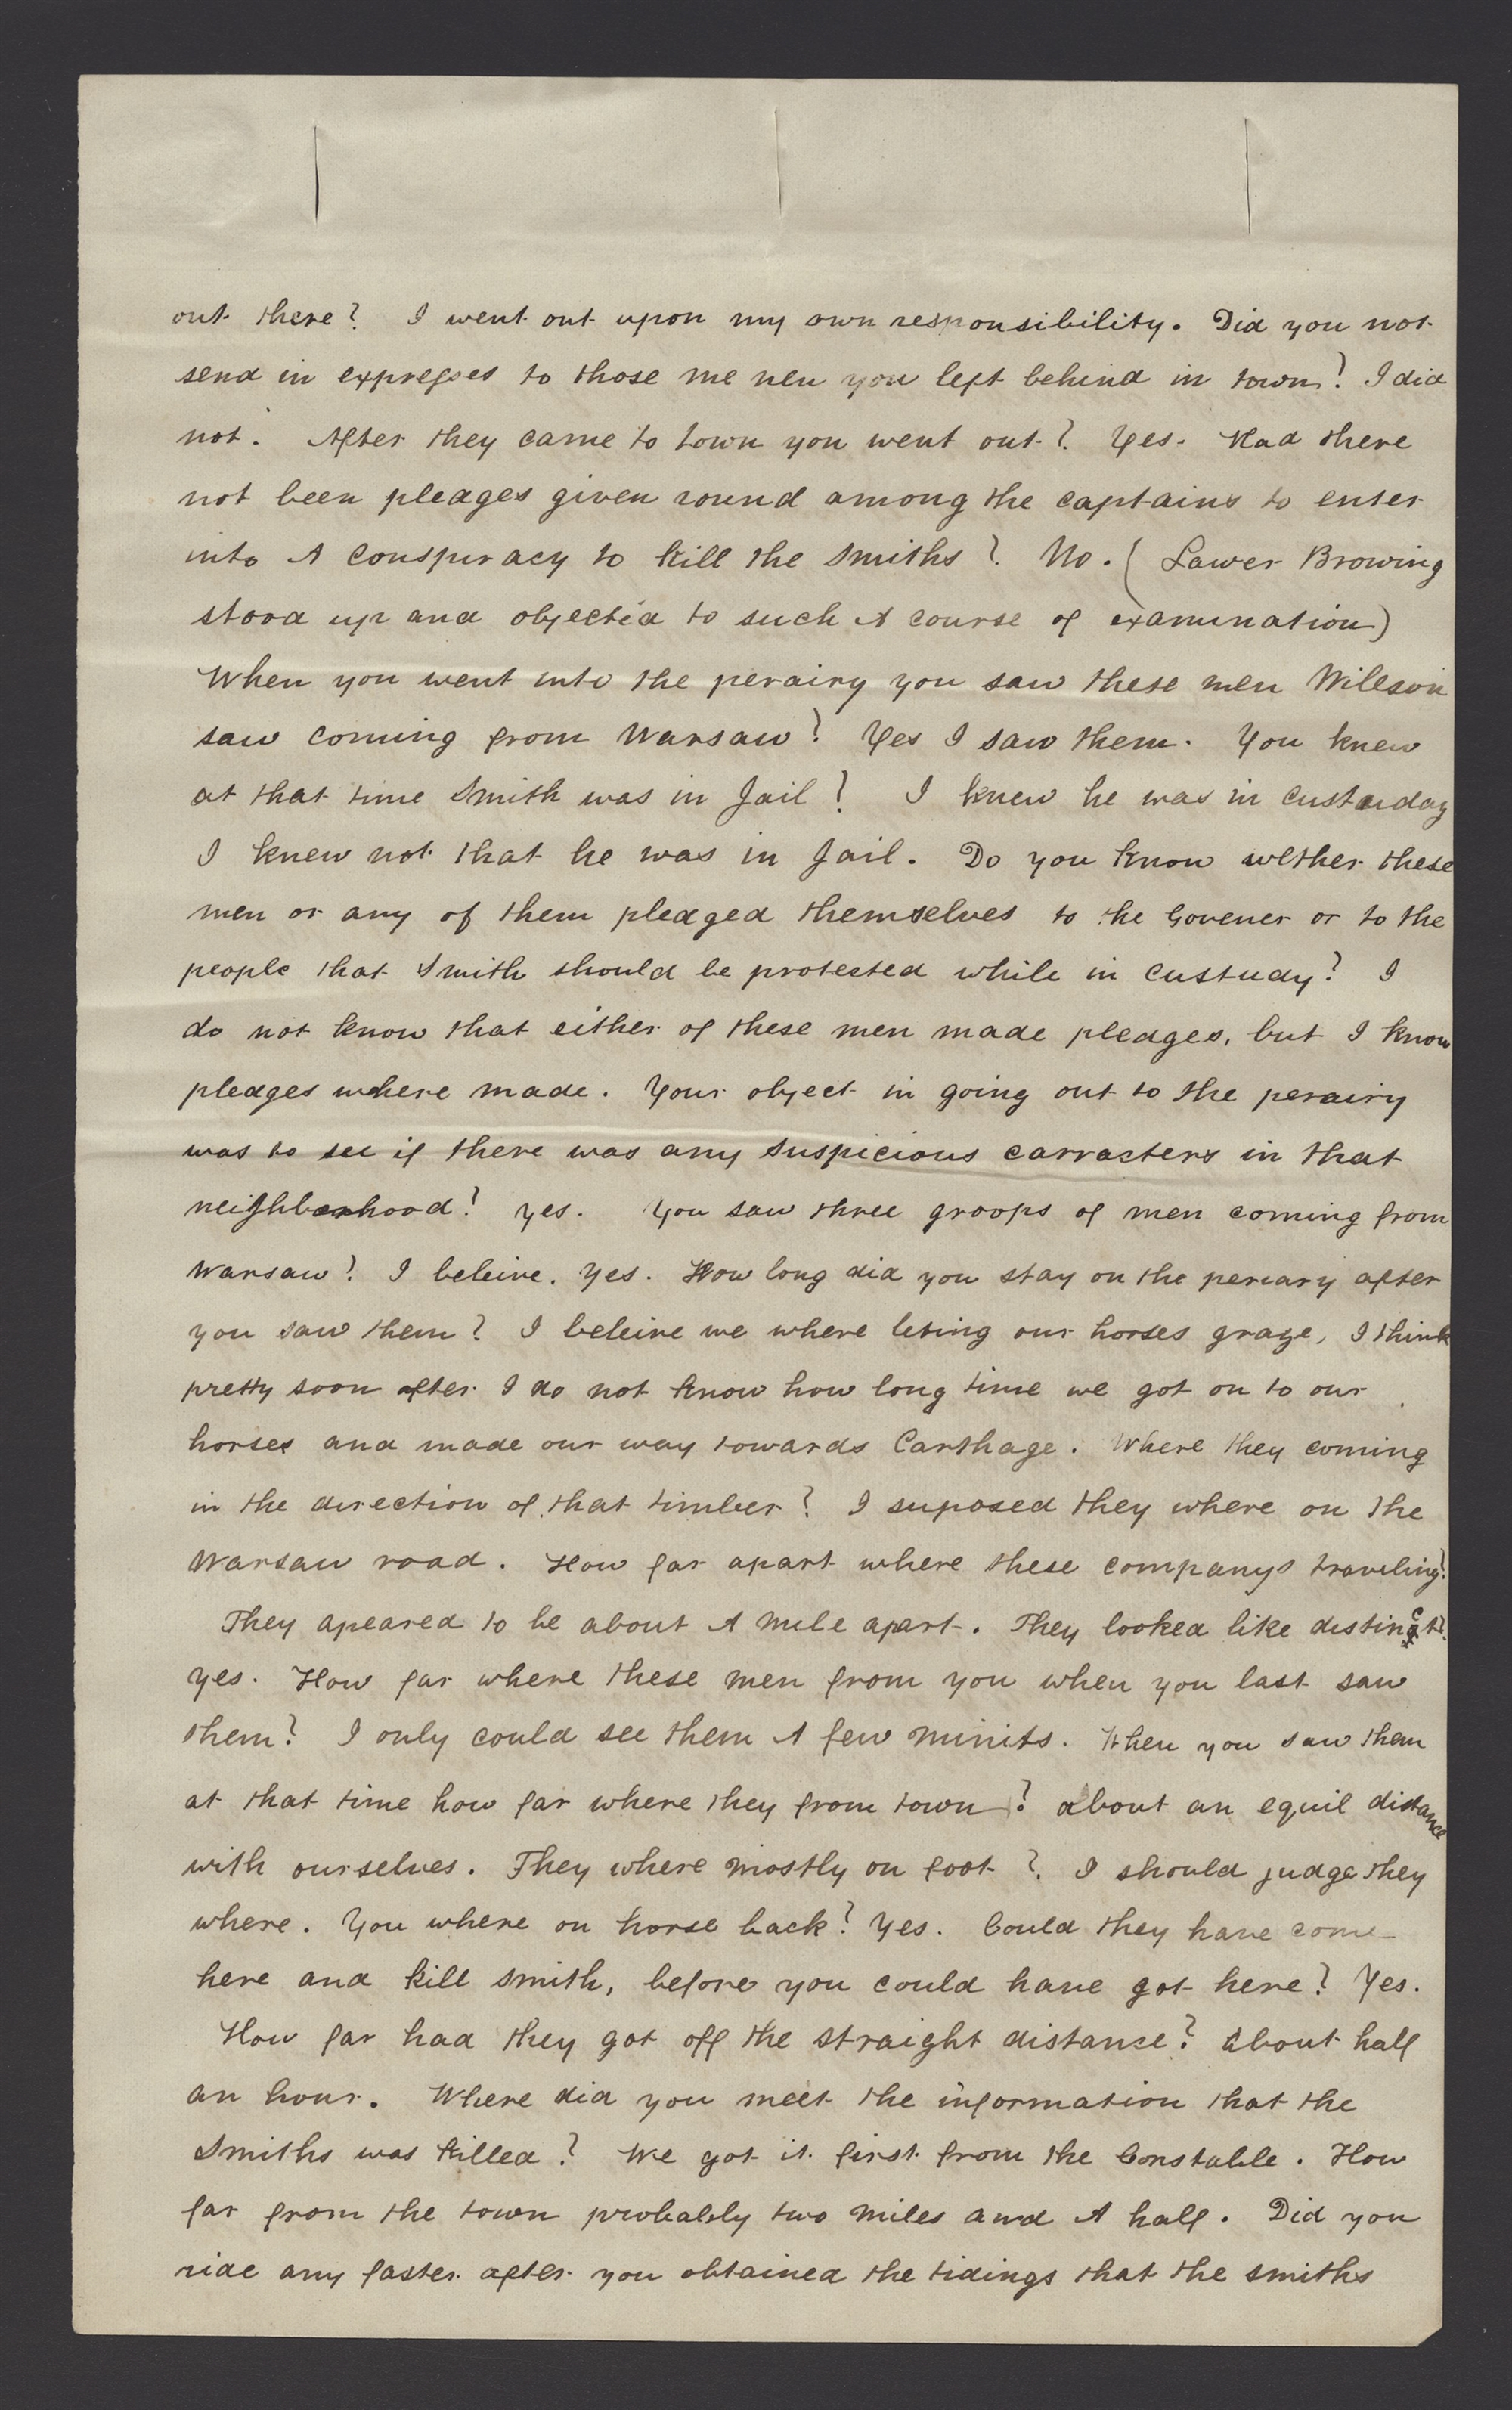 out there? I went out upon my own responsibility. Did you not
send in expresses to those me nen you left behind in town? I did
not. After they came to town you went out? Yes. Had there
not been pledges given round among the captains to enter
into A conspiracy to kill the Smiths? No. (Lawer Browing
stood up and objected to such A course of examination)
When you went into the perairy you saw these men Willson
saw coming from Warsaw? Yes I saw them. You knew
at that time Smith was in Jail? I knew he was in custauday
I knew not that he was in Jail. Do you know wether these
men or any of them pledged themselves to the Govener or to the
people that Smith should be protested while in custudy? I
do not know that either of these men made pledges, but I know
pledges where made. Your object in going out to the perairy
was to see if there was any suspicious carracters in that
neighborhood? yes. You saw three groops of men coming from
Warsaw? I beleive. Yes. How long did you stay on the perary after
you saw them? I beleive we where leting our horses graze, I think
pretty soon after I do not know how long time we got on to our
horses and made our way towards Carthage. Where they coming
in the direction of that timber? I suposed they where on the
Warsaw road. How far apart where these companys traveling?
They apeared to be about A mile apart. They looked like distinct?
yes. How far where these men from you when you last saw
them? I only could see them A few minits. When you saw them
at that time how far where they from town? about an equil distance
with ourselves. They where mostly on foot? I should judge they
where. You where on horse back? Yes. Could they have come
here and kill smith, before you could have got here? Yes.
How far had they got off the straight distance? About half
an hour. Where did you meet the information that the
Smiths was killed? We got it first from the Constable. How
far from the town probably two miles and A half. Did you
ride any faster after you obtained the tidings that the smiths